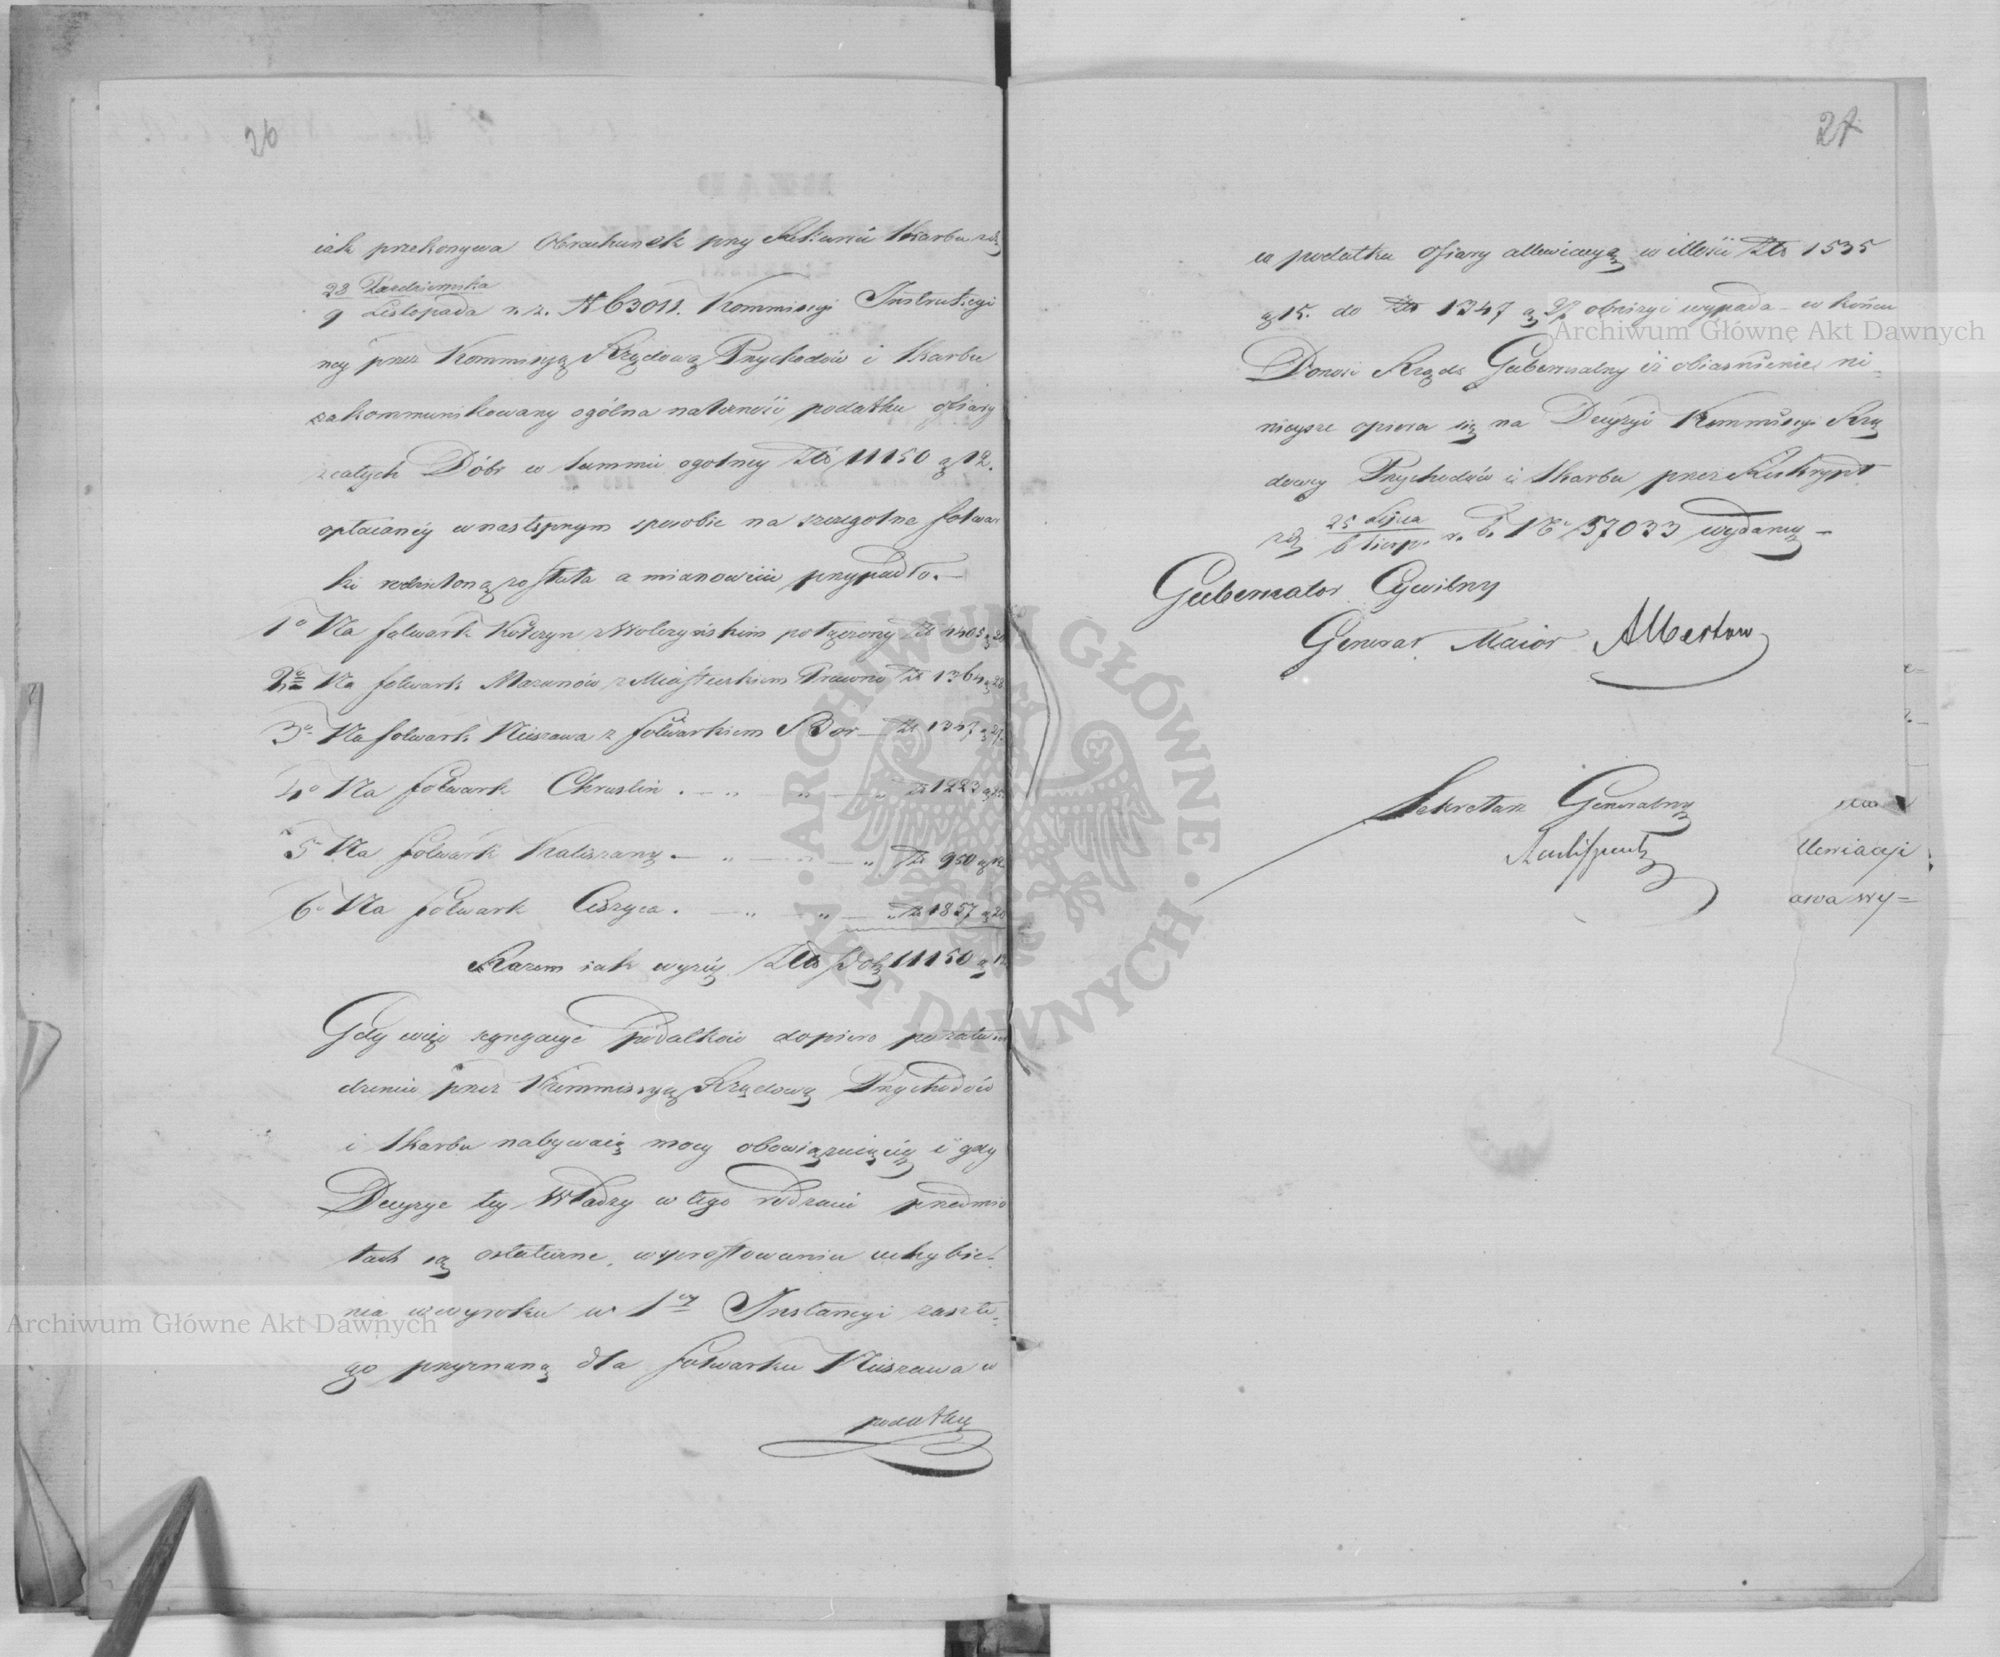 26
iak przekonywa Obrachunek przy Reskrypcie Skarbu z dz
28 Października
9 Listopada r. z. N 63011. Kommissyi Instrukcyi
ney przez Kommissyą Rządową Przychodów i Skarbu
zakommunikowany ogólna należność podatku ofiary
z całych Dóbr w summie ogolney Złp 11150 g 12.
opłacaney w następnym sposobie na szczegolne folwar
ki rozdzieloną została a mianowicie przypadło.—
1o Na folwark Kółczyn z Wolczyńskim połączony Zł 4405 g 20
2o Na folwark Mazanów z Miasteczkiem Prawno Zł 1364 g 28
3o Na folwark Niiszawa z folwarkiem Bór — Zł 1347 g 27
4o Na folwark Chruslin . — „ „ — „ Zł 1223 g
5o Na folwark Kaliszany — „ — „ — „ Zł 950 g
6o Na folwark Ciszyca . — „ „ — Zł 1857 g 20
Razem iak wyżey Złt Pol 11150 g 12
Gdy więc segregacye Podatków dopiero po zatwier
dzeniu przez Kommissyą Rządową Przychodów
i Skarbu nabywaią mocy obowiązuiącey i gdy
Decyzye tey Władzy w tego rodzaiu przedmio
tach są ostateczne, wyprostowaniu uchybie-
nia w wyroku w 1ey Instancyi zaszłe=
go przyznaną dla folwarku Niiszawa w
podatku
27
w podatku ofiary allewiacyą w illości Złt 1535
g 15. do Zł 1347 g 27 obniżyć wypada — w końcu
Donosi Rząd Gubernialny iż obiaśnienie ni=
nieysze opiera się na Decyzyi Kommissyi Rzą
dowey Przychodów i Skarbu przez Reskrypt
z dz 25 Lipca
6 Sierp. r. b. No 57033 wydaney —
Gubernator Cywilny
Generał Maior Albertow
Sekretarz Generalny
llewiacyi
awa wy=
Archiwum Główne Akt Dawnych
Archiwum Główne Akt Dawnych
ARCHIWUM GŁÓWNE · AKT DAWNYCH ·